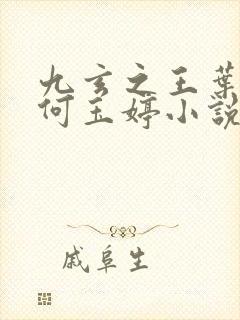 九玄之王葉
何玉婷小説
戚阜生